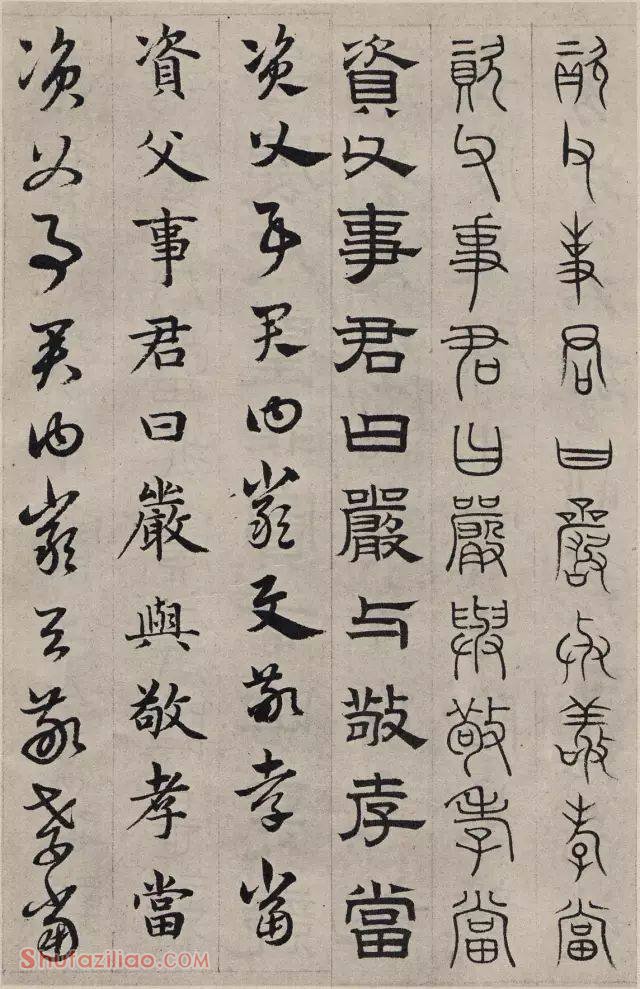 資父事君曰嚴與敬孝當
資父事君曰嚴與敬孝當
資父事君曰嚴与敬孝當
資父事君曰嚴與敬孝當
資父事君曰嚴與敬孝當
資父事君曰嚴与敬孝當
Shufaziliao.com